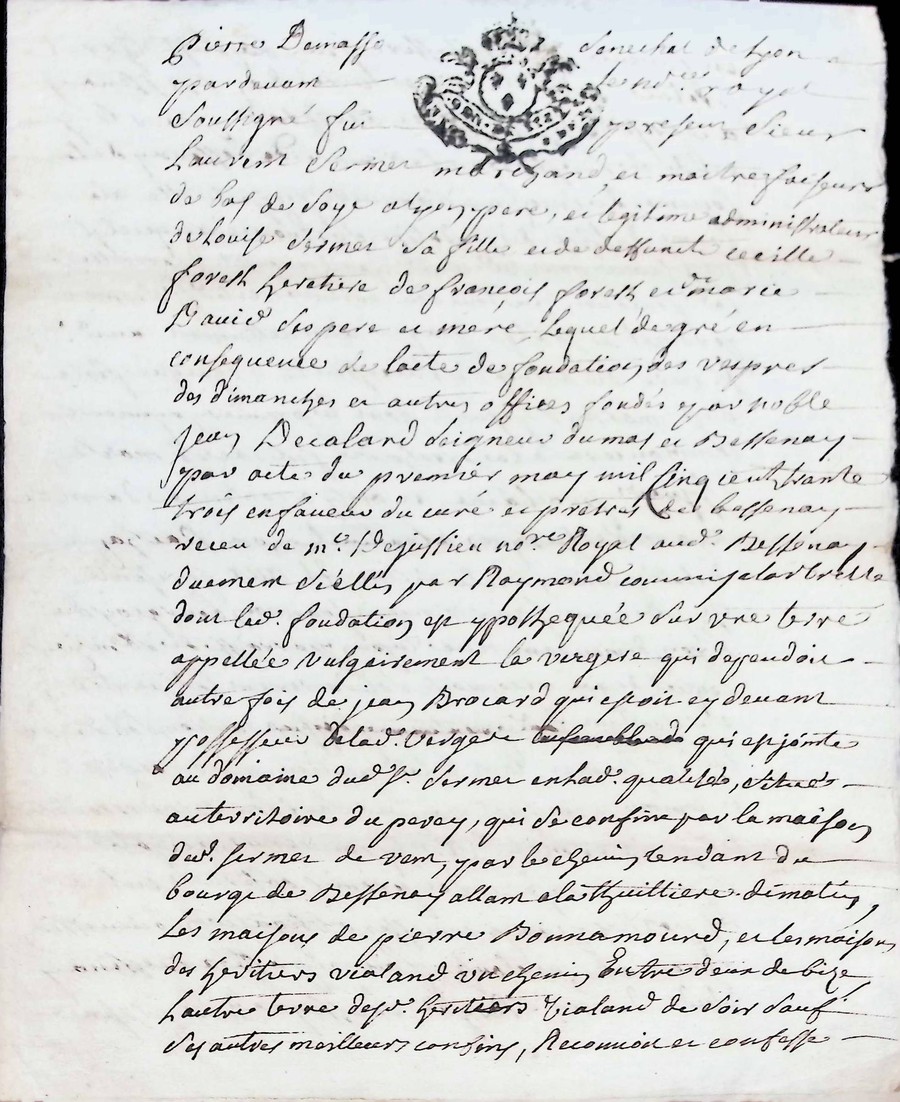 Pierre Damasse Senechal de Lyon a
pardevant royal
Soussigné fut present Sieur
Laurent Fermet marchand, et maitre faiseur
de bas de soye a Lyon, pere, et legitime administrateur
de Louise Fermet sa fille et de deffuncte Cecille
forest heretiere de françois forest et de marie
David ses pere et mere, lequel de gré en
consequence de lacte de fondation des vespres
des dimanches et autres offices fondés par noble
Jean Decalard Seigneur dumas et Bessenay
par acte du premier may mil cinq cent trante
trois en faveur du curé et pretres de bessenay
receu de me. Dejussieu nore. Royal aud. Bessenay
duement par Raymond commis a larbrelle
dont lad. fondation est ypothequée sur une terre
appellée vulgairement la vergere qui dependoit
autre fois de jean Brocard qui estoit cy devant
possesseur de lad. vergere qui est jointe
au domaine dud. sr. Fermet en lad. qualité, située
au territoire du perey, qui se confine par la maison
dud. fermet de vent, par le chemin tendant du
bourg de Bessenay allant a la Thuilliere de matin,
les maisons de pierre Bonnamourd, et les maisons
des heritiers vialand un chemin Entre deux de bize
Lautre terre desd. heritiers Vialand de soir sauf
ses autres meilleurs confins, Reconnoit et confesse